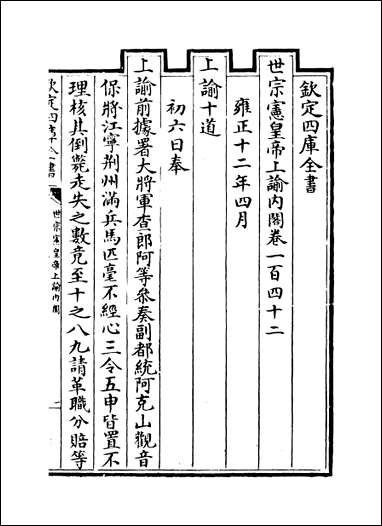 欽定四庫全書
世宗憲皇帝上諭內閣卷一百四十二
雍正十二年四月
上諭十道
初六日奉
上諭前據署大將軍查郎阿等叅奏副都統阿克山觀音
保將江寧荆州滿兵馬匹毫不經心三令五申皆置不
理核其倒斃走失之數竟至十之八九請革職分賠等
欽定四庫全書
世宗憲皇帝上諭內閣
一